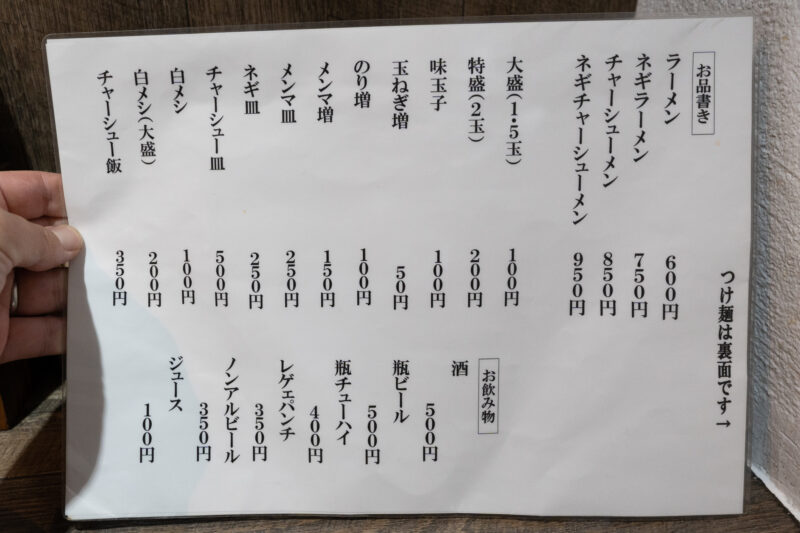 つけ麺は裏面です→
お品書き
ラーメン 600円
ネギラーメン 750円
チャーシューメン 850円
ネギチャーシューメン 950円
大盛(1・5玉) 100円
特盛(2玉) 200円
味玉子 100円
玉ねぎ増 50円
のり増 100円
メンマ増 150円
メンマ皿 250円
ネギ皿 250円
チャーシュー皿 500円
白メシ 100円
白メシ(大盛) 200円
チャーシュー飯 350円
お飲み物
酒 500円
瓶ビール 500円
瓶チューハイ 400円
レゲェパンチ 350円
ノンアルビール 350円
ジュース 100円